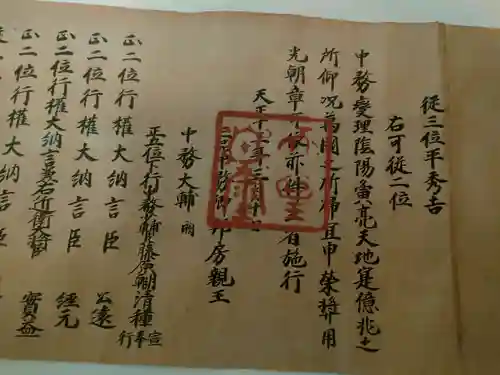 従三位平秀吉
右可従二位
中務燮理陰陽寅亮天地寔億兆之
所仰況萬國之所帰宜申榮奨用
光朝章可依前件主者施行
天正
二品行中務卿邦房親王
中務大輔闕
正五位下行中務少輔藤原朝臣清種宣奉行
正二位行權大納言臣 公遠
正二位行權大納言臣 經元
正二位行權大納言兼右近衛大將臣 實益
正二位行權大納言臣